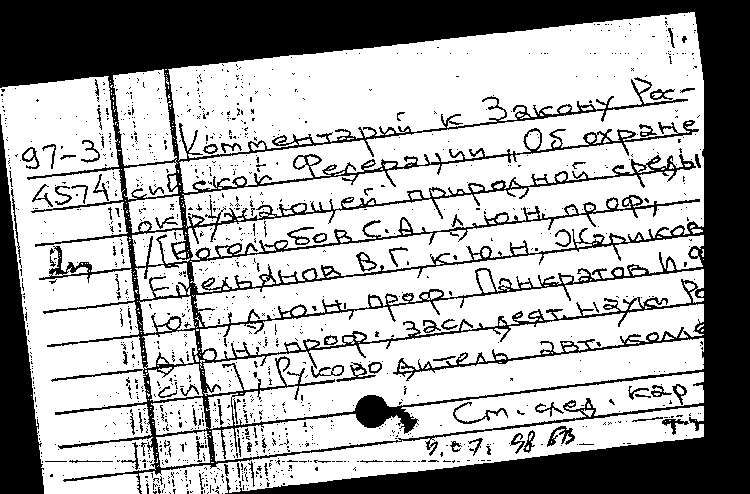 1.
97-3 Комментарий к Закону Рос-
4574 сийской Федерации „Об охране
окружающей природной среды
/[Боголюбов С.А., д.ю.н., проф.,
Емельянов В.Г., к.ю.н., Жариков
Ю.Г., д.ю.н., проф., Панкратов И.Ф
д.ю.н., проф., засл. деят. науки Ро
сии]; Руководитель авт. колле
См. след. карт